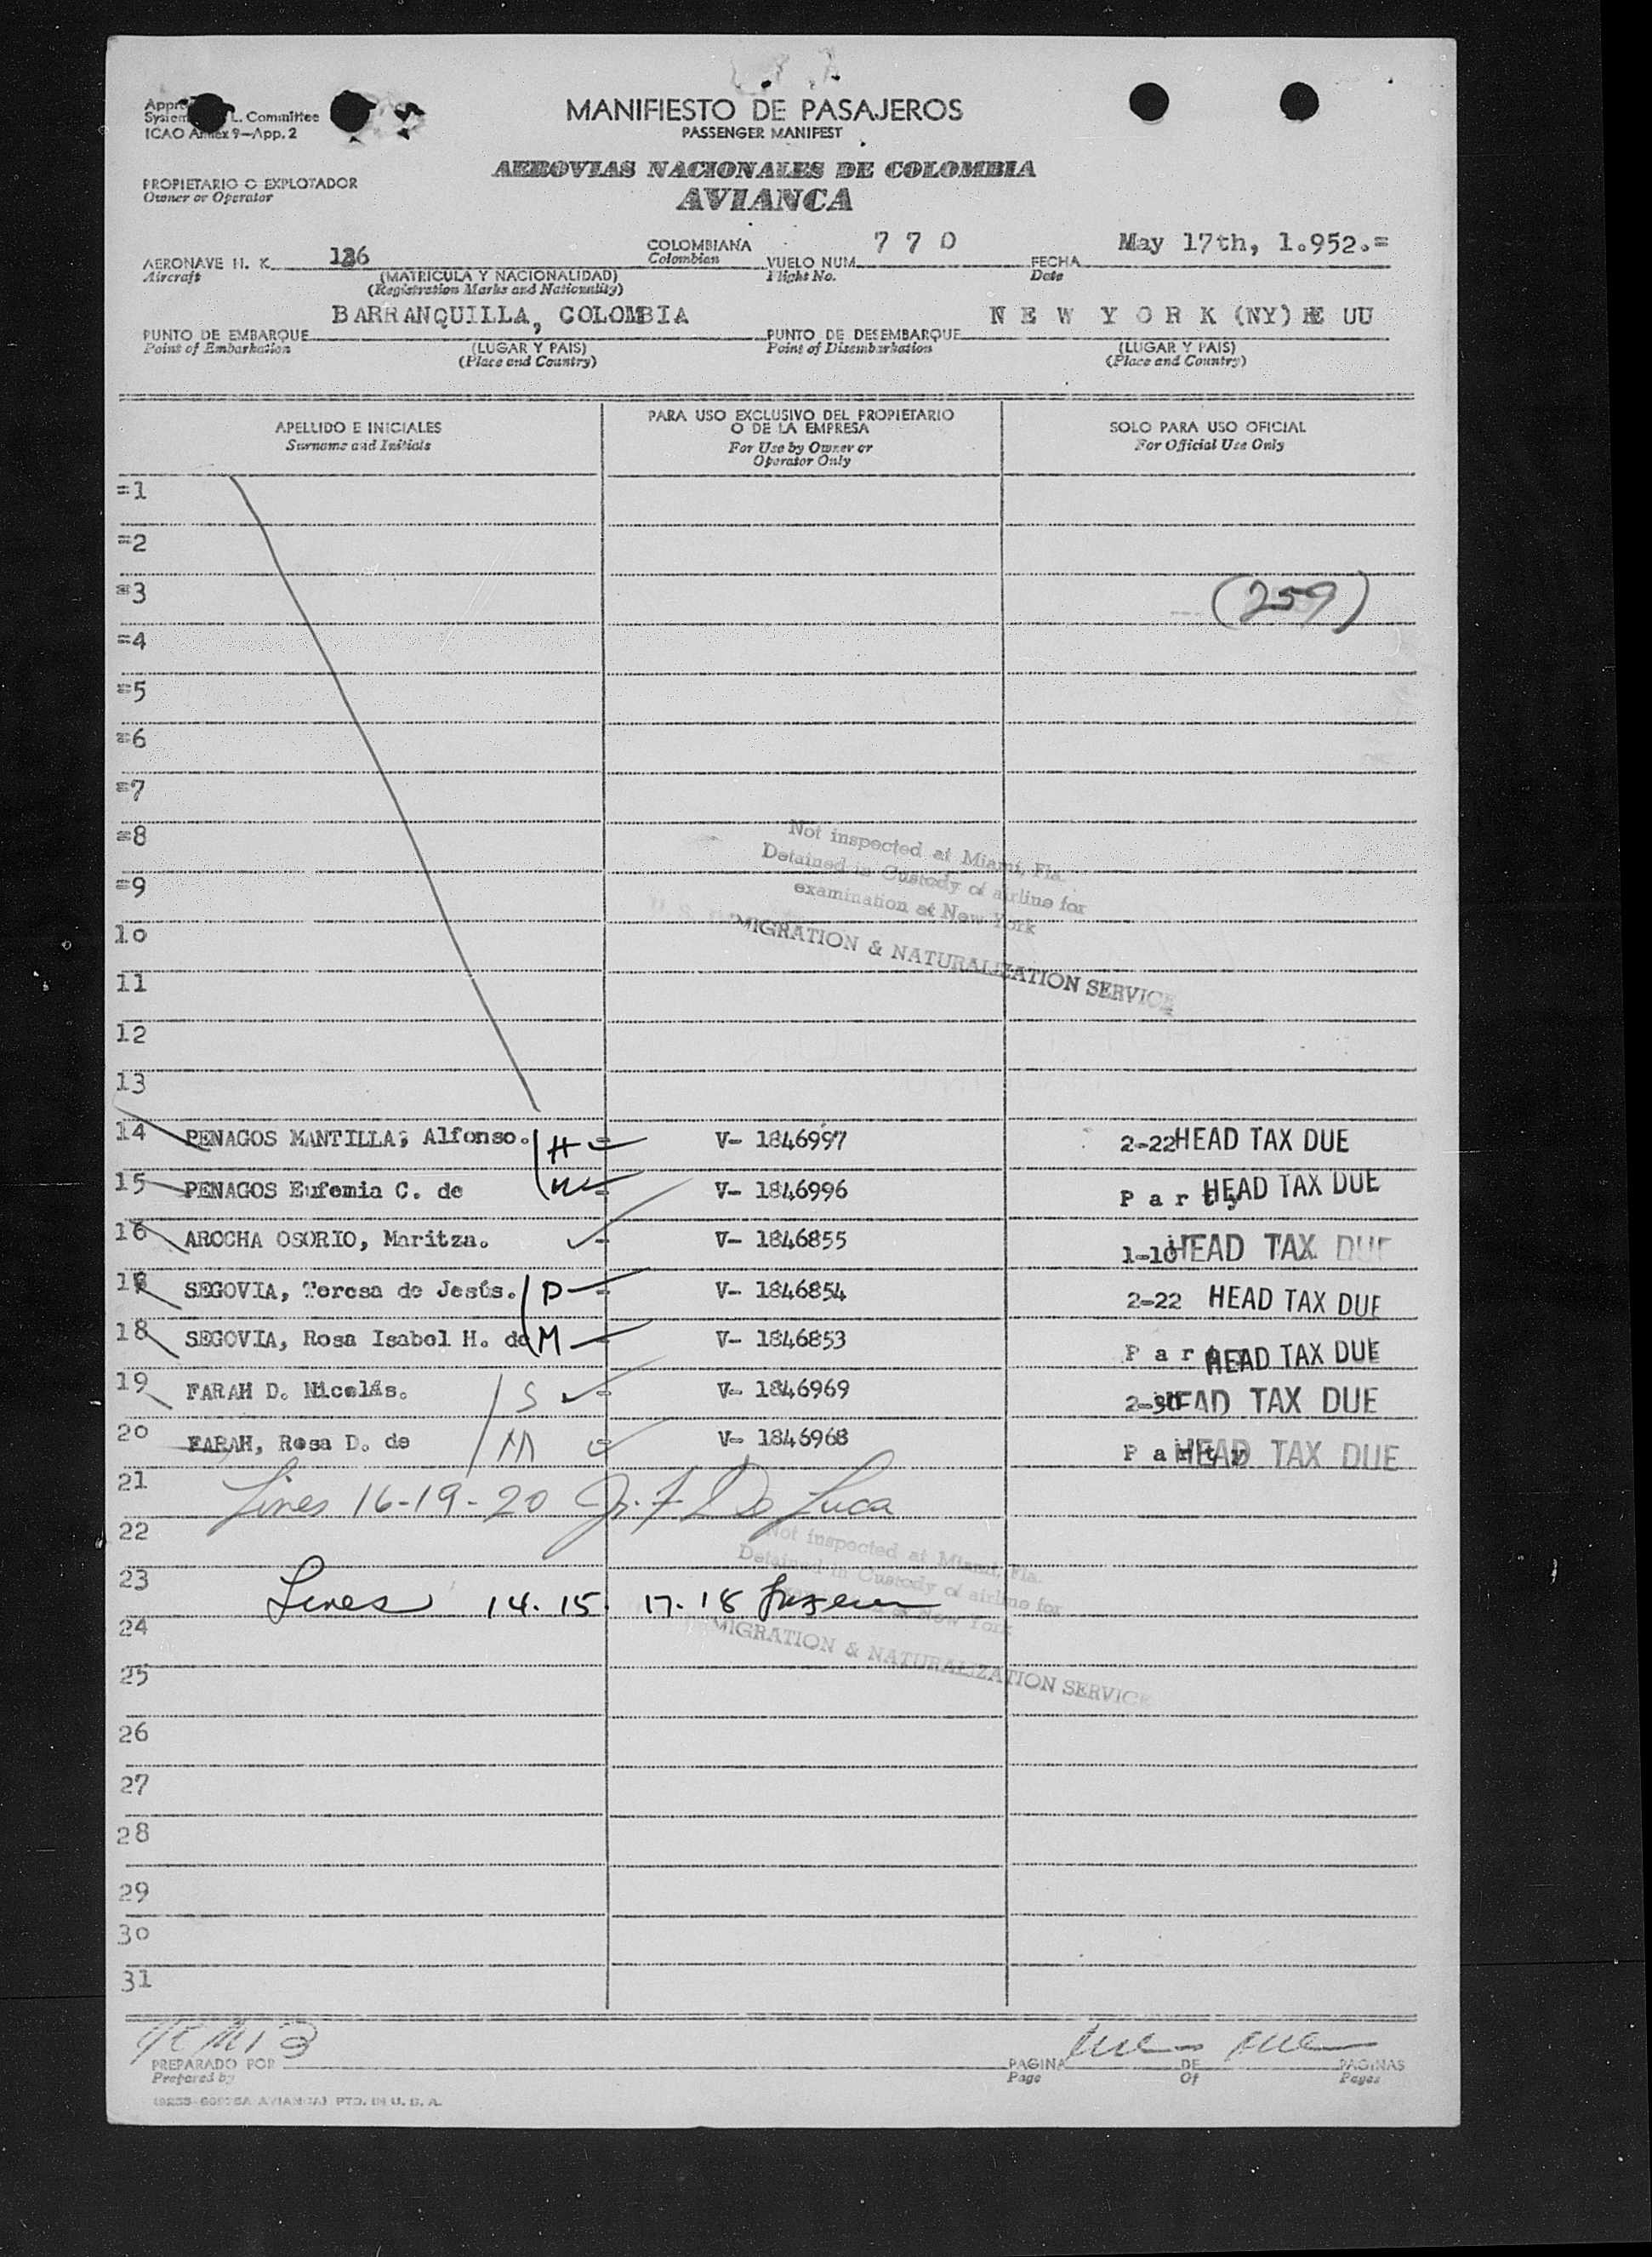 MANIFIESTO DE PASAJEROS
PASSENGER MANIFEST
L. Committee
ICAO Annex 9—App. 2
AEROVIAS NACIONALES DE COLOMBIA
AVIANCA
PROPIETARIO O EXPLOTADOR
Owner or Operator
AERONAVE H. K. 136 COLOMBIANA VUELO NUM. 770 FECHA May 17th, 1.952.=
Aircraft (MATRICULA Y NACIONALIDAD) Colombian Flight No. Date
(Registration Marks and Nationality)
PUNTO DE EMBARQUE BARRANQUILLA, COLOMBIA PUNTO DE DESEMBARQUE N E W Y O R K (NY) EE UU
Point of Embarkation (LUGAR Y PAIS) Point of Disembarkation (LUGAR Y PAIS)
(Place and Country) (Place and Country)
APELLIDO E INICIALES PARA USO EXCLUSIVO DEL PROPIETARIO O DE LA EMPRESA SOLO PARA USO OFICIAL
Surname and Initials For Use by Owner or Operator Only For Official Use Only
=1
=2
=3 (259)
=4
=5
=6
=7
=8
Not inspected at Miami, Fla.
=9
Detained in Custody of airline for
examination at New York
10
U. S. IMMIGRATION & NATURALIZATION SERVICE
11
12
13
14 PENAGOS MANTILLA, Alfonso. H = V- 1846997 2-22 HEAD TAX DUE
15 PENAGOS Eufemia C. de W = V- 1846996 Party HEAD TAX DUE
16 AROCHA OSORIO, Maritza. = V- 1846855 1-10 HEAD TAX DUE
17 SEGOVIA, Teresa de Jesús. D = V- 1846854 2-22 HEAD TAX DUE
18 SEGOVIA, Rosa Isabel H. de M V- 1846853 Party HEAD TAX DUE
19 FARAH D. Nicolás. S = V- 1846969 2-30 HEAD TAX DUE
20 FARAH, Rosa D. de M V- 1846968 Party HEAD TAX DUE
21
Lines 16-19-20 De Luca
22
Not inspected at Miami, Fla.
23
Detained in Custody of airline for
Lines 14. 15. 17. 18
examination at New York
24
IMMIGRATION & NATURALIZATION SERVICE
25
26
27
28
29
30
31
PREPARADO POR PAGINA DE PAGINAS
Prepared by Page Of Pages
AVIANCA) PTD. IN U. S. A.